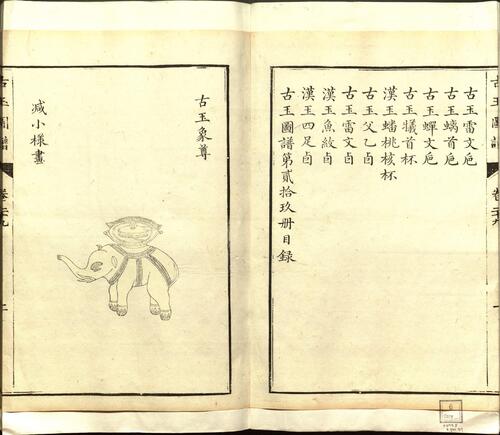 古玉雷文卮
古玉螭首卮
古玉蟬文卮
古玉犧首杯
漢玉蟠桃核杯
古玉父乙卣
古玉雷文卣
漢玉魚紋卣
漢玉四足卣
古玉圖譜第貳拾玖册目錄
古玉象尊
减小樣畫
古玉圖譜